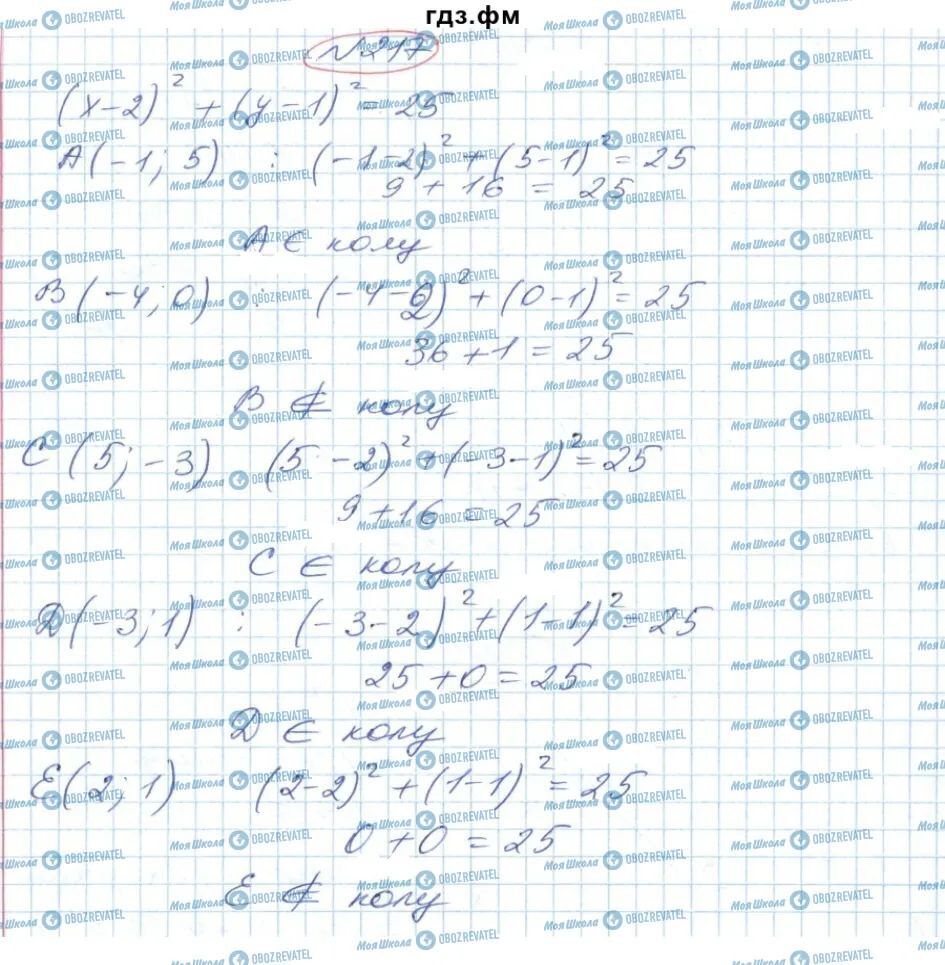 гдз.фм
№217
(x-2)² + (y-1)² = 25
A(-1; 5) : (-1-2)² + (5-1)² = 25
9 + 16 = 25
A ∈ колу
B(-4; 0) : (-4-2)² + (0-1)² = 25
36 + 1 = 25
B ∉ колу
C(5; -3) (5-2)² + (-3-1)² = 25
9 + 16 = 25
C ∈ колу
D(-3; 1) : (-3-2)² + (1-1)² = 25
25 + 0 = 25
D ∈ колу
E(2; 1) (2-2)² + (1-1)² = 25
0 + 0 = 25
E ∉ колу
Моя Школа OBOZREVATEL